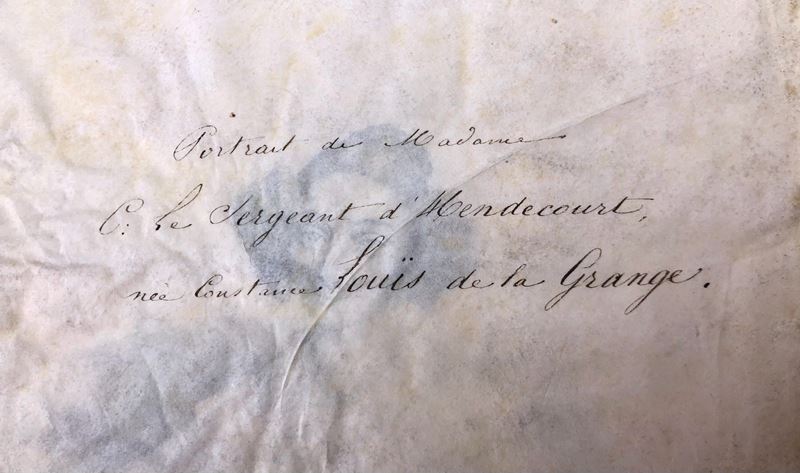 Portrait de Madame
C: Le Sergeant d'Hendecourt,
née Constance Louïs de la Grange.